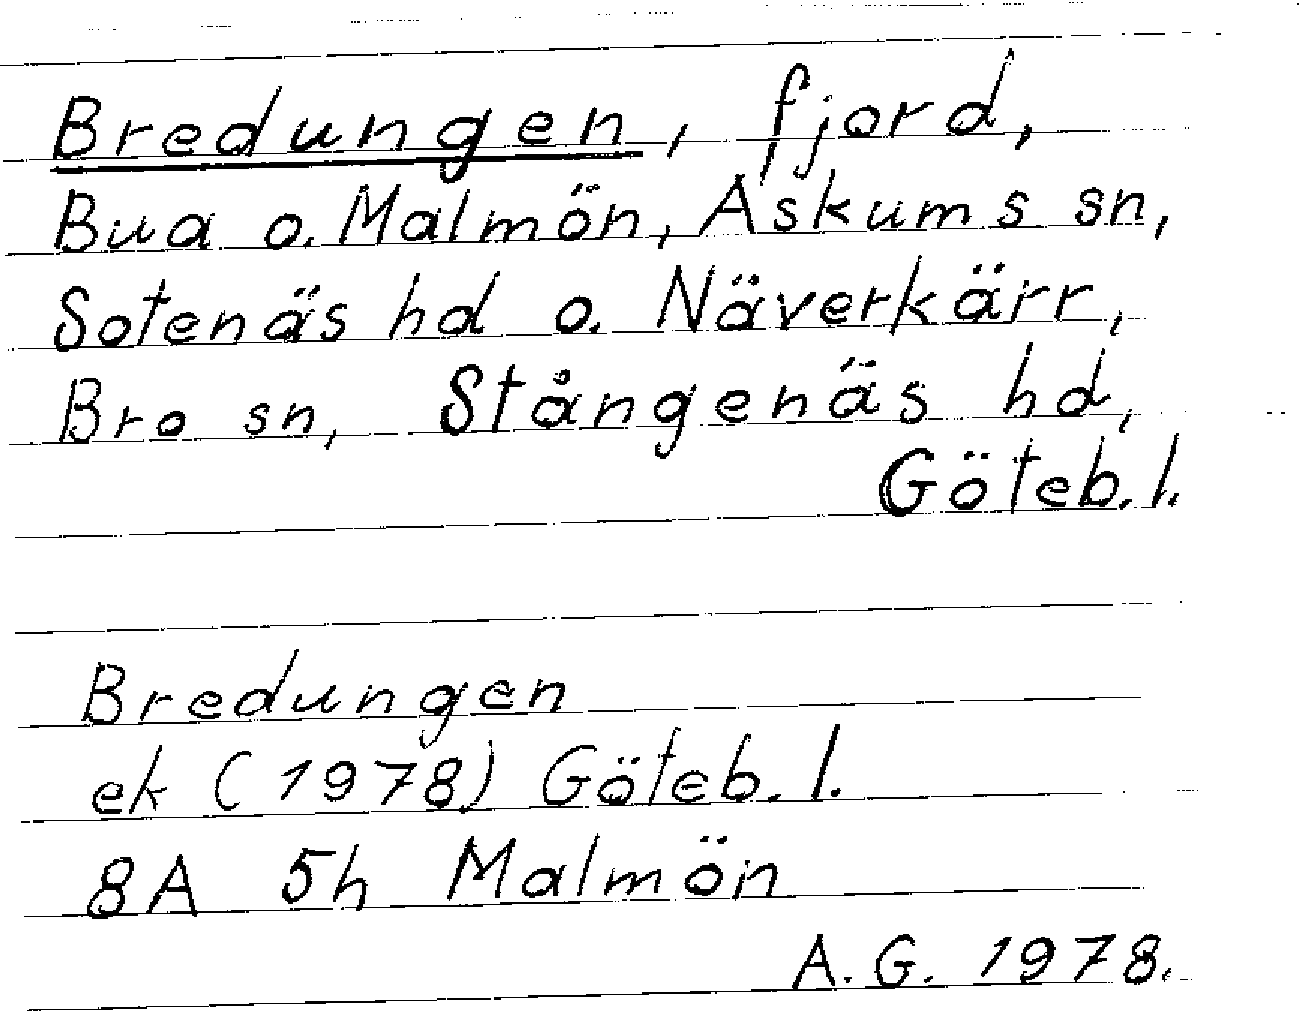 Bredungen, fjord,
Bua o. Malmön, Askums sn,
Sotenäs hd o. Näverkärr,
Bro sn, Stångenäs hd,
Göteb. l.
Bredungen
ek (1978) Göteb. l.
8A 5h Malmön
A.G. 1978.